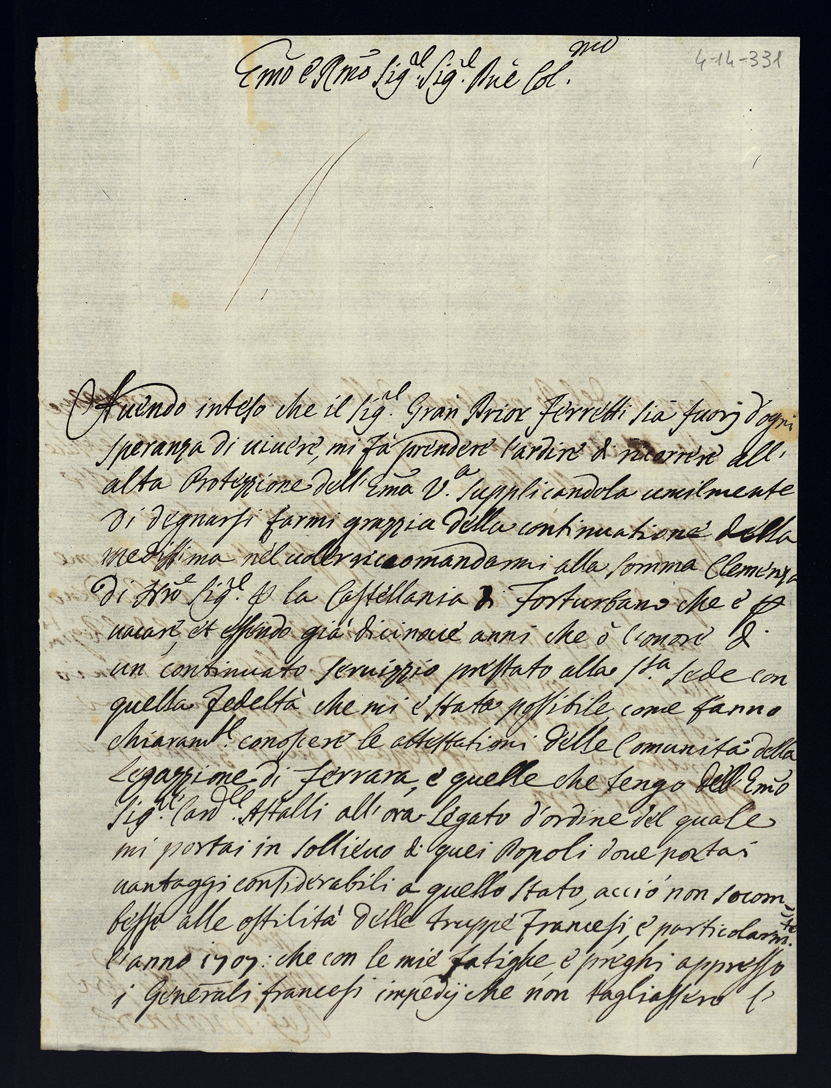 4-14-331
Emo e Rmo Sigre Sigre Pne Col.mo
Auendo inteso che il Sigre Gran Prior Ferretti sia fuorj d'ogni
speranza di uiuere, mi fà prendere l'ardire di ricorrere all'
alta Protezzione dell'Ema V.a supplicandola umilmente
di degnarsi farmi grazzia della continuatione della
medissima nel uolerriccomandarmi alla somma Clemenza
di Nro Sigre p la Castellania di Forturbano che è p
uacare, et essendo già dicinoue anni che ò l'onore di
un continuato seruizzio prestato alla Sta Sede con
quella fedeltà che mi è stata possibile, come fanno
chiaramte conoscere le attestationi delle Comunità della
Legazzione di Ferrara, e quelle che tengo dell'Emo
Sigre Cardle Astalli all'ora Legato d'ordine del quale
mi portai in sollieuo di quei Popoli doue portai
uantaggi considerabili a quello stato, acciò non socom-
besse alle ostilità delle truppe Francesi, e particolarmte
l'anno 1707: che con le mie fatighe, e preghi appresso
i Generali francesi impedij che non tagliassero l'